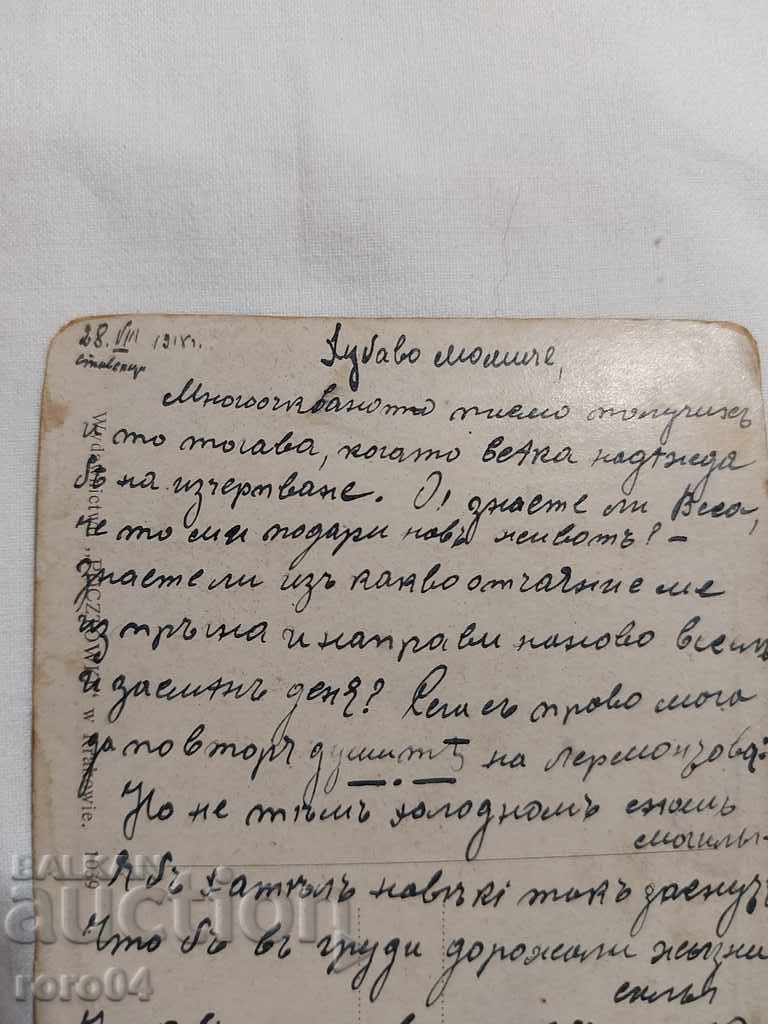 28. VIII 1918 г.
Хубаво момиче,
Многоочакваното писмо получихъ
и то тогава, когато всѣка надѣжда
бѣ на изчерпване. О, знаете ли Веса,
че то ми подари новъ животъ! –
знаете ли изъ какво отчаяние ме
изтръгна и направи наново веселъ
и засмѣнъ деня? Сега съ право мога
да повторѫ думитѣ на Лермонтова:
Но не тѣмъ холоднымъ сномъ
могилы
Я бъ хатѣлъ навѣки такъ заснуть
Что бъ въ груди дорожали жызни
силы
Wydawnictwo w Krakowie. 109
BALKAN
auction
roro04